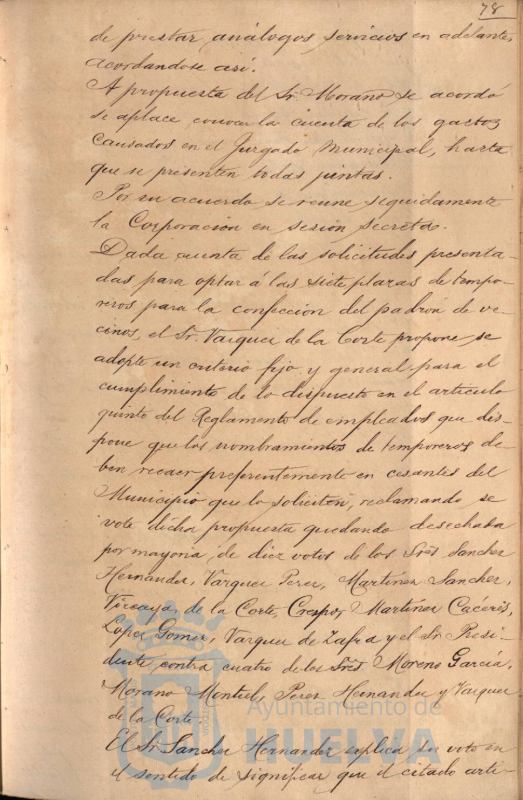 78
de prestar análogos servicios en adelante,
acordandose así.
A propuesta del Sr. Moraño se acordó
se aplace conocer la cuenta de los gastos
causados en el Juzgado Municipal, hasta
que se presenten todas juntas.
Por su acuerdo se reune seguidamente
la Corporacion en sesion secreta.
Dada cuenta de las solicitudes presenta-
das para optar á las siete plazas de tempo-
reros para la confección del padrón de ve-
cinos, el Sr. Vazquez de la Corte propone se
adopte un criterio fijo y general para el
cumplimiento de lo dispuesto en el articulo
quinto del Reglamento de empleados que dis-
pone que los nombramientos de temporeros de-
ben recaer preferentemente en cesantes del
Municipio que lo soliciten, reclamando se
vote dicha propuesta quedando desechada
por mayoria, de diez votos de los Sres Sanchez
Hernandez, Vazquez Perez, Martinez Sanchez,
Vizcaya, de la Corte, Crespo, Martinez Caceres,
Lopez Gomez, Vazquez de Zafra y el Sr. Presi-
dente, contra cuatro de los Sres Moreno García,
Morano Montiel, Perez Hernandez y Vazquez
de la Corte.
El Sr. Sanchez Hernandez explica su voto en
el sentido de significar que el citado arti-
Ayuntamiento de
HUELVA